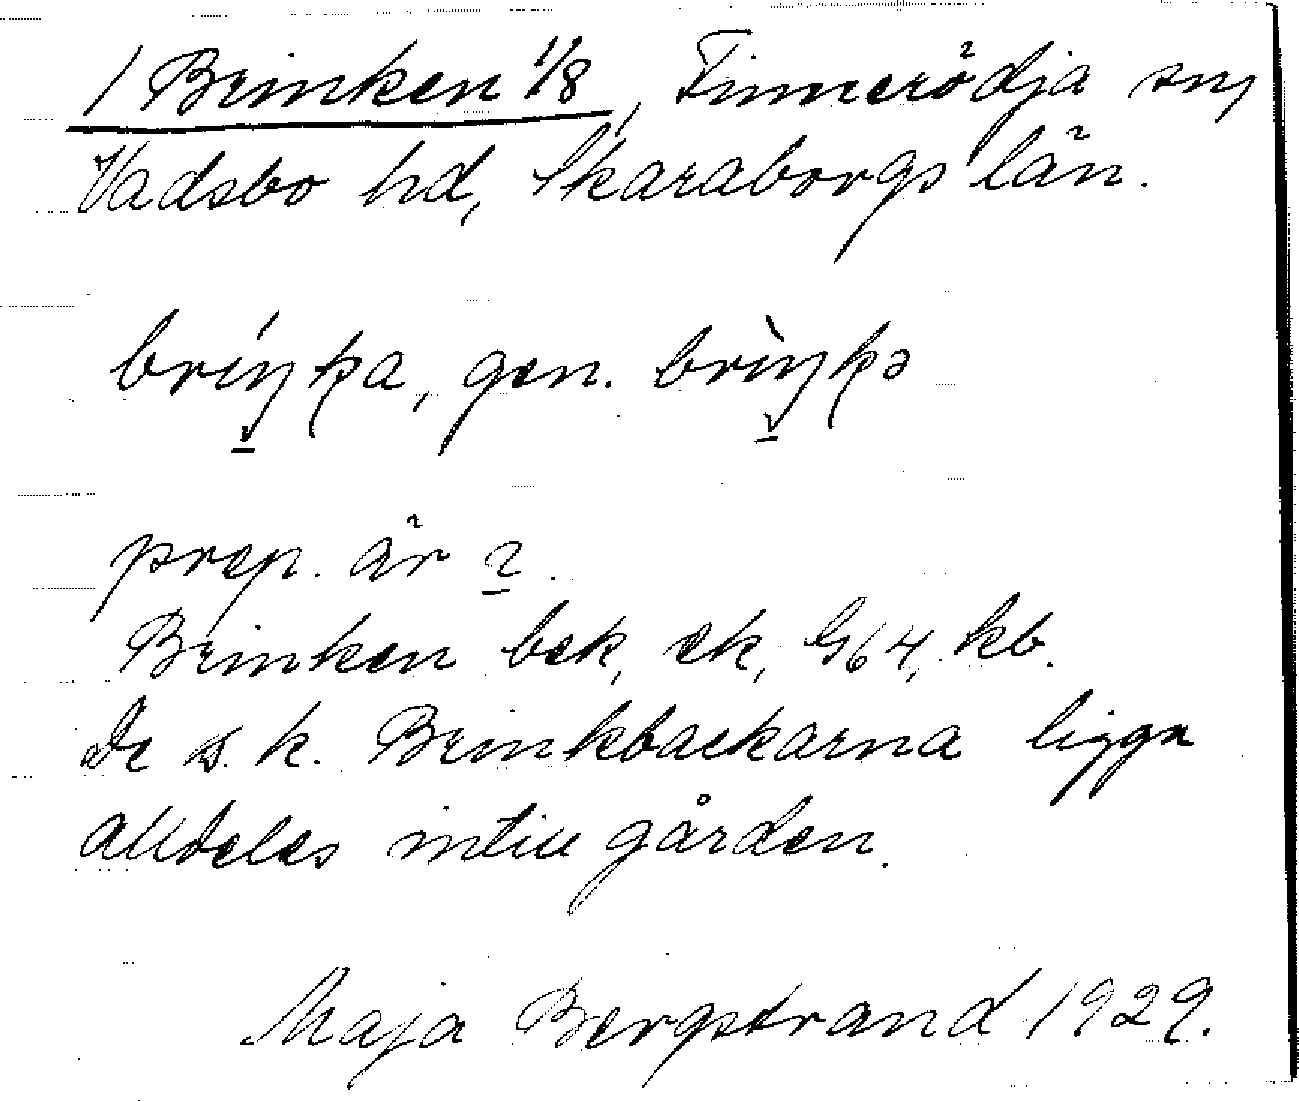 1 Brinken 1/8, Finnerödja sn,
Vadsbo hd, Skaraborgs län.
bríŋka, gen. brìŋkə
prep. är
Brinken bek, ek, G64, kb.
De s. k. Brinkbackarna ligga
alldeles intill gården.
Maja Bergstrand 1929.